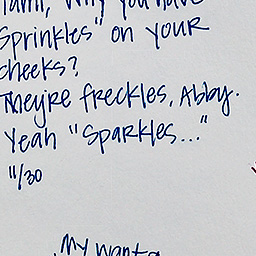 Tami, why you have
Sprinkles" on your
cheeks?
They're freckles, Abby.
Yeah "Sparkles..."
11/30
My wants